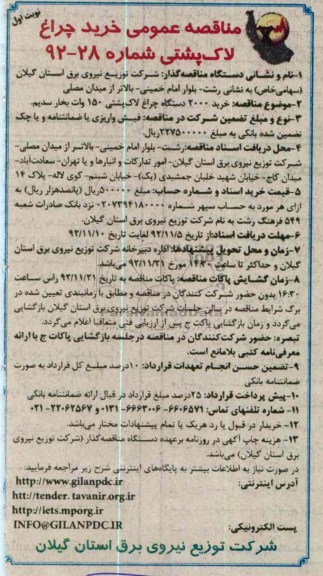 نوبت اول
مناقصه عمومی خرید چراغ
لاک‌پشتی شماره ۲۸-۹۲
۱-نام و نشانی دستگاه مناقصه‌گذار: شرکت توزیع نیروی برق استان گیلان
(سهامی‌خاص) به نشانی رشت- بلوار امام خمینی- بالاتر از میدان مصلی
۲-موضوع مناقصه: خرید ۲۰۰۰ دستگاه چراغ لاک‌پشتی ۱۵۰ وات بخار سدیم.
۳-نوع و مبلغ تضمین شرکت در مناقصه: فیش واریزی یا ضمانتنامه و یا چک
تضمین شده بانکی به مبلغ ۲۲۷۵۰۰۰۰۰ریال.
۴-محل دریافت اسناد مناقصه:رشت- بلوار امام خمینی- بالاتر از میدان مصلی-
شرکت توزیع نیروی برق استان گیلان- امور تدارکات و انبارها و یا تهران- سعادت‌آباد-
میدان کاج- خیابان شهید خلبان جمشیدی (یک)- خیابان شبنم- کوی لاله- پلاک ۱۴
۵-قیمت خرید اسناد و شماره حساب: مبلغ ۵۰۰۰۰۰ریال (پانصدهزار ریال) به
ازای هر مورد به حساب سپهر شماره ۰۲۰۷۳۹۴۱۸۰۰۰ نزد بانک صادرات شعبه
۵۴۹ فرهنگ رشت به نام شرکت توزیع نیروی برق استان گیلان.
۶-مهلت دریافت اسناد: از تاریخ ۹۲/۱۱/۵ لغایت تاریخ ۹۲/۱۱/۱۰
۷-زمان و محل تحویل پیشنهادها: اداره دبیرخانه شرکت توزیع نیروی برق استان
گیلان و حداکثر تا ساعت ۱۴:۳۰ مورخ ۹۲/۱۱/۲۱ می‌باشد.
۸-زمان گشایش پاکات مناقصه: پاکات مناقصه به تاریخ ۹۲/۱۱/۲۱ راس ساعت
۱۶:۳۰ بدون حضور شرکت کنندگان در مناقصه و مطابق با زمانبندی تعیین شده در
برگ شرایط مناقصه در سالن جلسات شرکت توزیع نیروی‌برق استان گیلان بازگشایی
می‌گردد و زمان بازگشایی پاکت ج پس از ارزیابی فنی متعاقبا اعلام می‌گردد.
تبصره: حضور شرکت‌کنندگان در مناقصه درجلسه بازگشایی پاکات ج با ارائه
معرفی‌نامه کتبی بلامانع است.
۹-تضمین حسن انجام تعهدات قرارداد: ۱۰درصد مبلغ کل قرارداد به صورت
ضمانتنامه بانکی
۱۰-پیش پرداخت قرارداد: ۲۵درصد مبلغ قرارداد در قبال ارائه ضمانتنامه بانکی
۱۱-شماره تلفنهای تماس: ۶۶۰۶۵۷۱- ۶۶۶۳۰۰۶-۰۱۳۱ و ۲۲۰۶۲۵۶۷-۰۲۱
۱۲-خریدار در قبول یا رد هریک یا تمام پیشنهادات مختار می‌باشد.
۱۳- هزینه چاپ آگهی در روزنامه برعهده دستگاه مناقصه‌گذار (شرکت توزیع نیروی
برق استان گیلان) می‌باشد.
در صورت نیاز به اطلاعات بیشتر به پایگاه‌های اینترنتی شرح زیر مراجعه فرمایید:
آدرس اینترنتی: http://www.gilanpdc.ir
htt://tender.tavanir.org.ir
http://iets.mporg.ir
پست الکترونیکی: INFO@GILANPDC.IR
شرکت توزیع نیروی برق استان گیلان